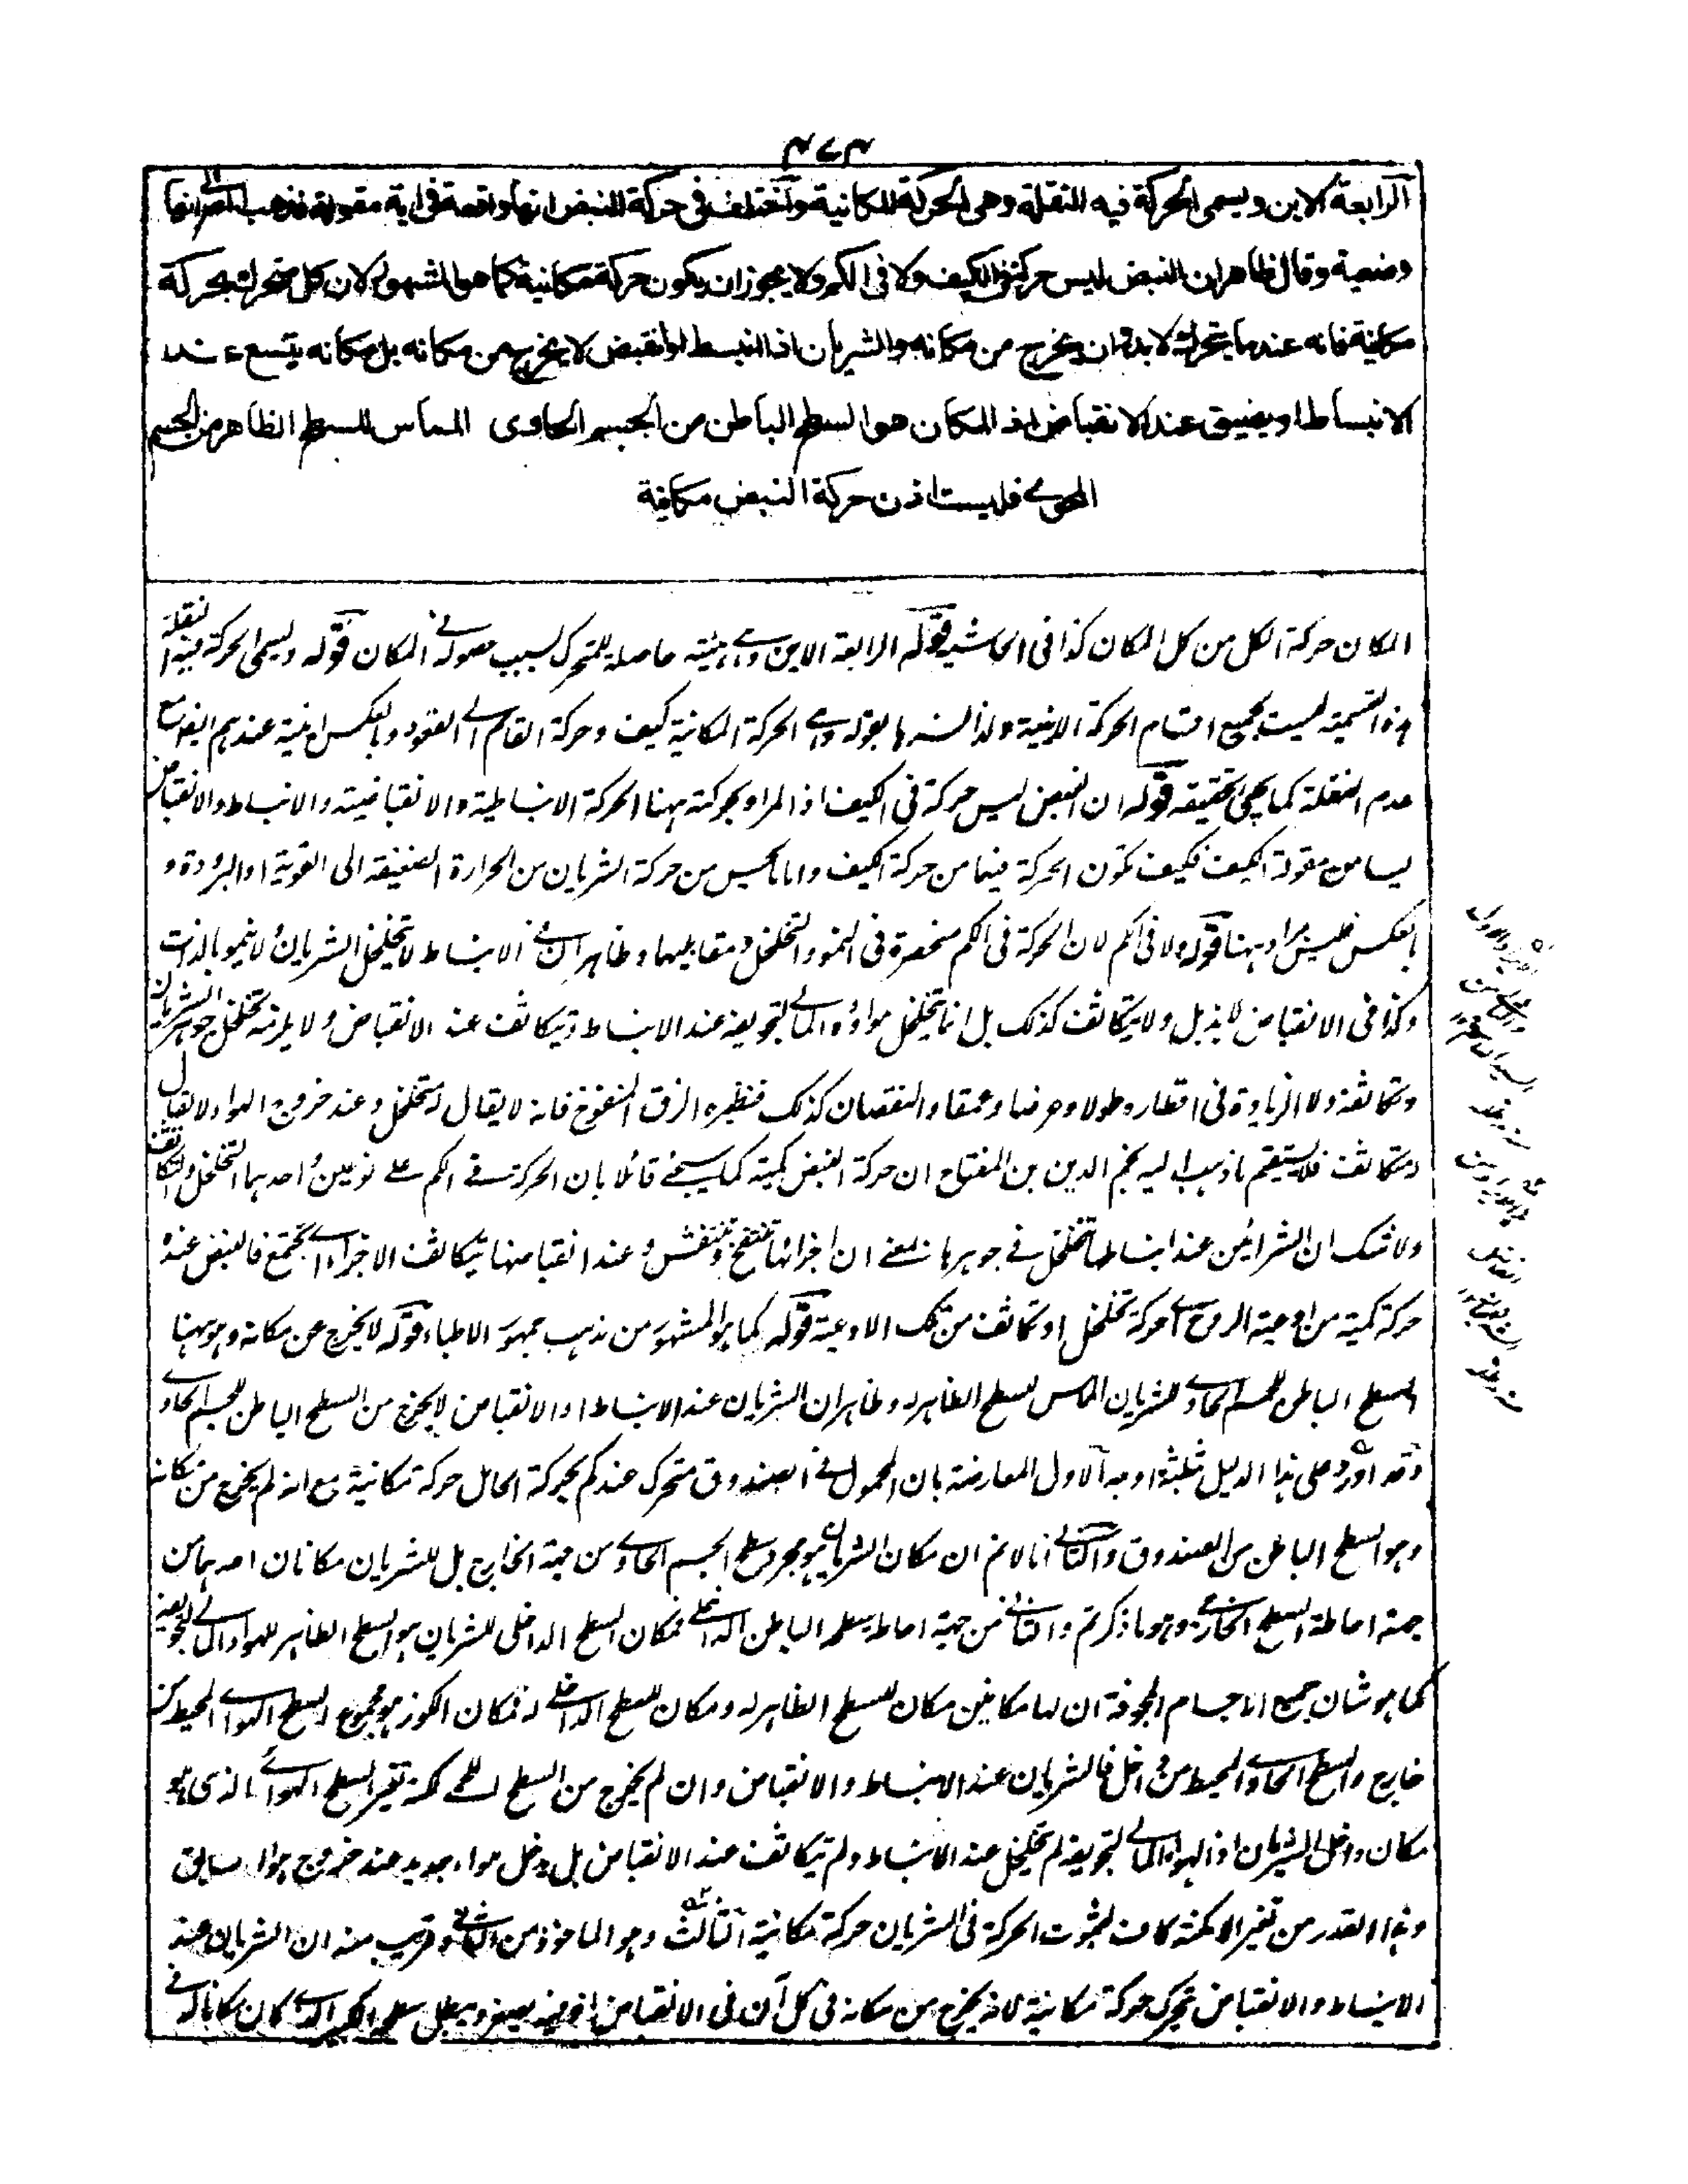 ٤٧٤
الرابعة الاين ويسمى الحركة فيه النقلة وهى الحركة المكانية واختلف فى حركة النبض انها واقعة فى اية مقولة فذهب الى انها
وضعية وقال ظاهر ان النبض ليس حركة فى الكيف ولا فى الكم ولا يجوز ان يكون حركة مكانية كما هو المشهور لان كل متحرك بحركة
مكانية فانه عندما يتحرك لابد وان يخرج من مكانه والشريان اذا انبسط او انقبض لا يخرج من مكانه بل مكانه يتسع عند
الانبساط او يضيق عند الانقباض اذ المكان هو السطح الباطن من الجسم الحاوى المماس للسطح الظاهر من الجسم
المحوى فليست اذن حركة النبض مكانية
المكان حركة الكل من كل المكان كذا فى الحاشية قوله الرابعة الاين وهى هيئة حاصلة للمتحرك بسبب حصوله فى المكان قوله ويسمى الحركة فيه النقلة
هذه التسمية ليست لجميع اقسام الحركة الاينية ولذا فسرها بقوله وهى الحركة المكانية كيف وحركة القائم الى القعود وبالعكس اينية عندهم ايضا مع
عدم النقلة كما يجئ تحقيقه قوله ان النبض ليس حركة فى الكيف اذ المراد بحركته ههنا الحركة الانبساطية والانقباضية والانبساط والانقباض
ليسا من مقولة الكيف فكيف تكون الحركة فيهما من حركة الكيف واما ما يحس من حركة الشريان من الحرارة الضعيفة الى القوية او البرودة و
بالعكس فليس مراد ههنا قوله ولا فى الكم لان الحركة فى الكم منحصرة فى النمو والتخلخل ومقابليهما وظاهر ان فى الانبساط لا يتخلخل الشريان ولا ينمو بالذات
وكذا فى الانقباض لا يذبل ولا يتكاثف كذلك بل انما يتخلخل هواؤه المالئ لتجويفه عند الانبساط ويتكاثف عند الانقباض ولا يلزمه تخلخل جوهر الشريان
وتكاثفه ولا الزيادة فى اقطاره طولا وعرضا وعمقا والنقصان كذلك فنظيره الزق المنفوخ فانه لا يقال له متخلخل وعند خروج الهواء لا يقال
له متكاثف فلا يستقيم ما ذهب اليه نجم الدين بن المفتاح ان حركة النبض كمية كما سيجئ قائلا بان الحركة فى الكم على نوعين احدهما التخلخل والتكاثف
ولا شك ان الشرائين عند انبساطها تتخلخل فى جوهرها بمعنى ان اجزائها تنتفخ وتنتفش وعند انقباضها تتكاثف الاجزاء اى تجتمع فالنبض عنده
حركة كمية من اوعية الروح اى حركة تخلخل او تكاثف من تلك الاوعية قوله كما هو المشهور من مذهب جمهور الاطباء قوله لا يخرج عن مكانه وهو ههنا
السطح الباطن للجسم الحاوى للشريان المماس لسطح الظاهر له وظاهر ان الشريان عند الانبساط او الانقباض لا يخرج من السطح الباطن للجسم الحاوى
وقد اورد على هذا الدليل ثلثة اوجه الاول المعارضة بان المحمول فى الصندوق متحرك عندكم بحركة الحامل حركة مكانية مع انه لم يخرج من مكانه
وهو السطح الباطن من الصندوق والثانى انا لا نم ان مكان الشريان هو مجرد سطح الجسم الحاوى من جهة الخارج بل للشريان مكانان احدهما من
جهة احاطة السطح الخارجى وهو ما ذكرتم والثانى من جهة احاطة سطحه الباطن الداخلى فمكان السطح الداخلى للشريان هو السطح الظاهر للهواء المالئ لتجويفه
كما هو شان جميع الاجسام المجوفة ان لها مكانين مكان للسطح الظاهر له ومكان للسطح الداخلى له فمكان الكوز هو مجموع السطح الهوائى المحيط من
خارج والسطح الحاوى المحيط من داخل فالشريان عند الانبساط والانقباض وان لم يخرج من السطح اللحمى لكنه تغير السطح الهوائى الذى هو
مكان داخل الشريان اذ الهواء المالئ لتجويفه لم يتخلخل عند الانبساط ولم يتكاثف عند الانقباض بل دخل هواء جديد عند خروج هواء سابق
وهذا القدر من تغير الامكنة كاف لثبوت الحركة فى الشريان حركة مكانية الثالث وهو الماخوذ من الثانى وقريب منه ان الشريان عند
الانبساط والانقباض يتحرك حركة مكانية لانه يخرج من مكانه فى كل آن فى الانقباض اذ حينئذ يصغر ويبطل سطحه الكبير الذى كان مكانا له فى